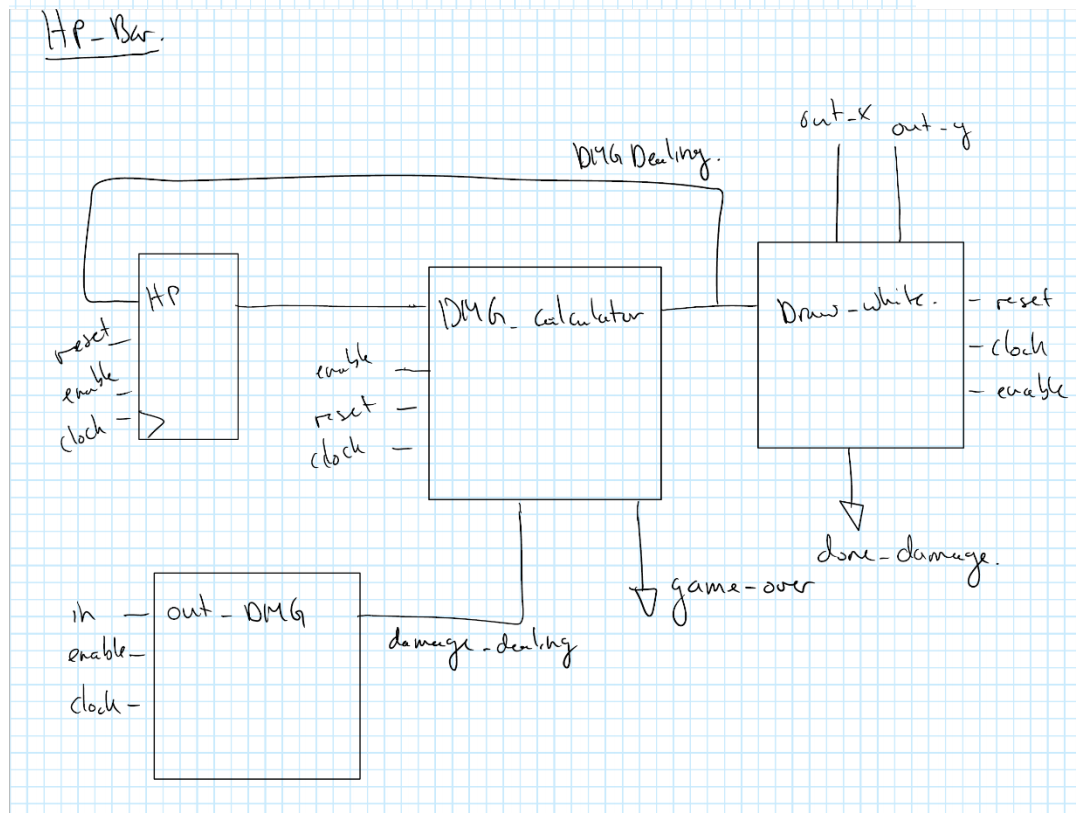 HP-Bar.
out-x
out-y
DMG Dealing.
HP
reset
enable
clock
DMG-Calculator
enable
reset
clock
Draw-white.
reset
clock
enable
done-damage.
game-over
in
enable
clock
out-DMG
damage-dealing